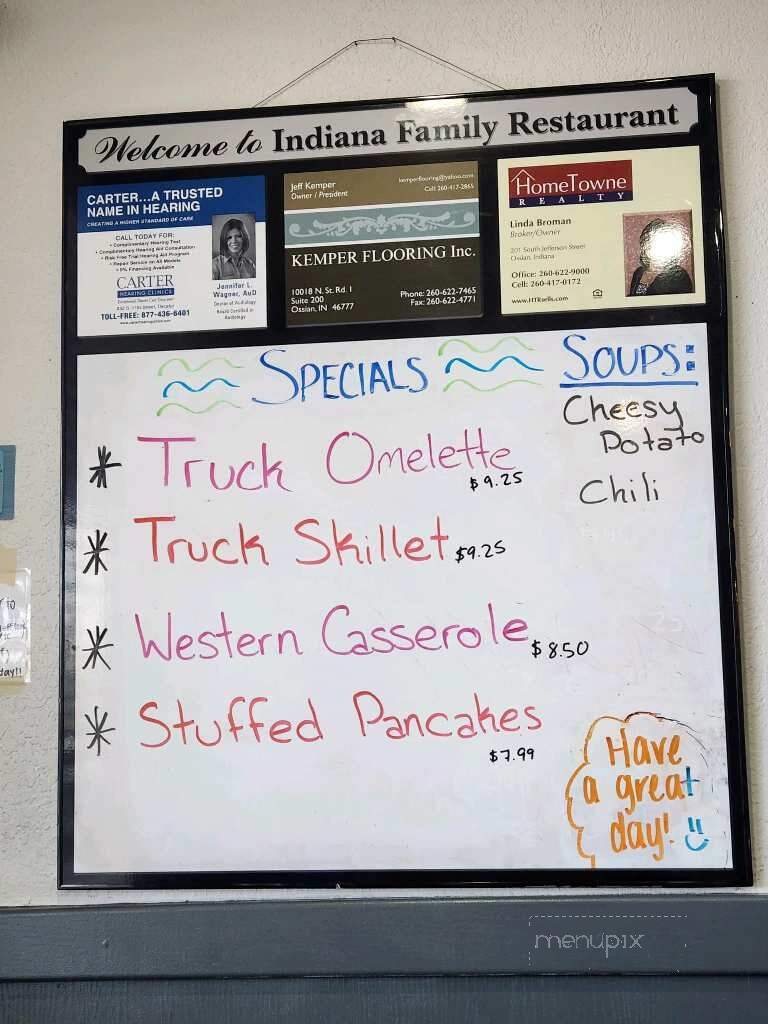 Welcome to Indiana Family Restaurant
CARTER...A TRUSTED
NAME IN HEARING
CREATING A HIGHER STANDARD OF CARE
CALL TODAY FOR:
• Complimentary Hearing Test
• Complimentary Hearing Aid Consultation
• Risk Free Trial Hearing Aid Program
• Repair Service on All Models
• 0% Financing Available
CARTER
HEARING CLINICS
TOLL-FREE: 877-436-6401
Jennifer L.
Wagner, AuD
Doctor of Audiology
Board Certified in
Audiology
Jeff Kemper
Owner / President
kemperflooring@yahoo.com
Cell: 260-417-2865
KEMPER FLOORING Inc.
10018 N. St. Rd. 1
Suite 200
Ossian, IN 46777
Phone: 260-622-7465
Fax: 260-622-4771
HomeTowne
REALTY
Linda Broman
Broker/Owner
201 South Jefferson Street
Ossian, Indiana
Office: 260-622-9000
Cell: 260-417-0172
www.HTRsells.com
SPECIALS
* Truck Omelette
$9.25
* Truck Skillet $9.25
* Western Casserole $8.50
* Stuffed Pancakes
$7.99
SOUPS:
Cheesy
Potato
Chili
Have
a great
day!
menupix